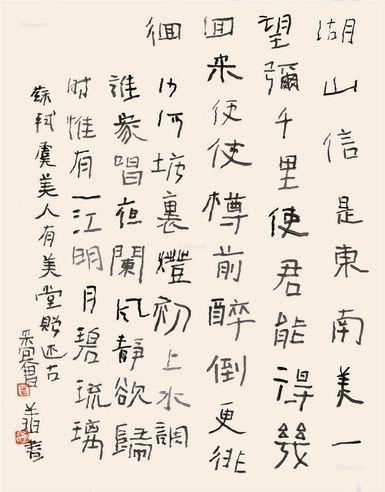 湖山信是東南美一
望彌千里使君能得幾
回來便使樽前醉倒更徘
徊
沙河坊裏燈初上水調
誰家唱夜闌風靜欲歸
時惟有一江明月碧琉璃
蘇軾虞美人有美堂贈述古